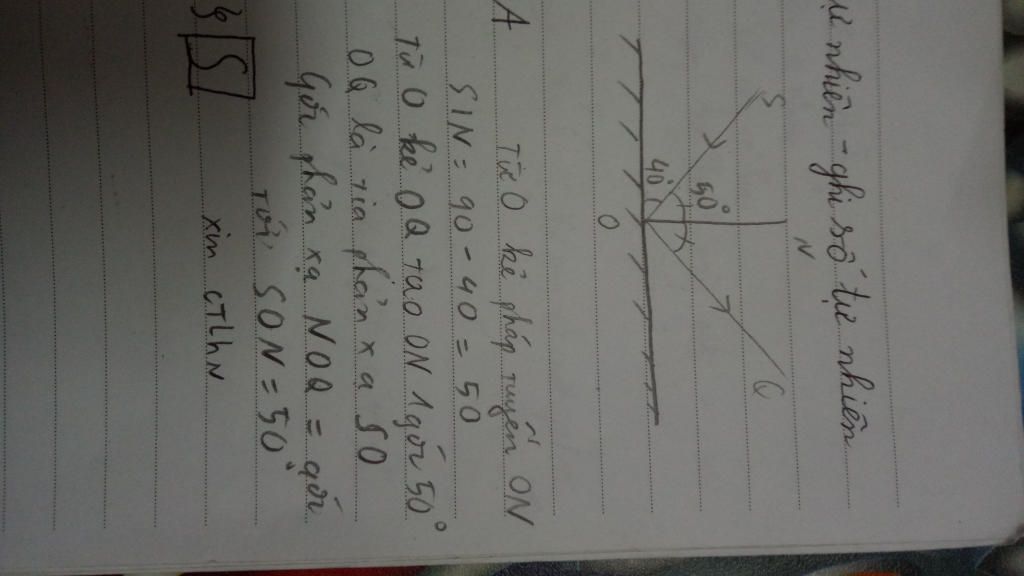 tự nhiên - ghi số tự nhiên
N
S
50°
40°
Q
O
A
Từ O kẻ pháp tuyến ON
SIN = 90 - 40 = 50
Từ O kẻ OQ tạo ON 1 góc 50°
OQ là tia phản xạ SO
Góc phản xạ NOQ = góc
tới SON = 50°
S
xin cTlhN